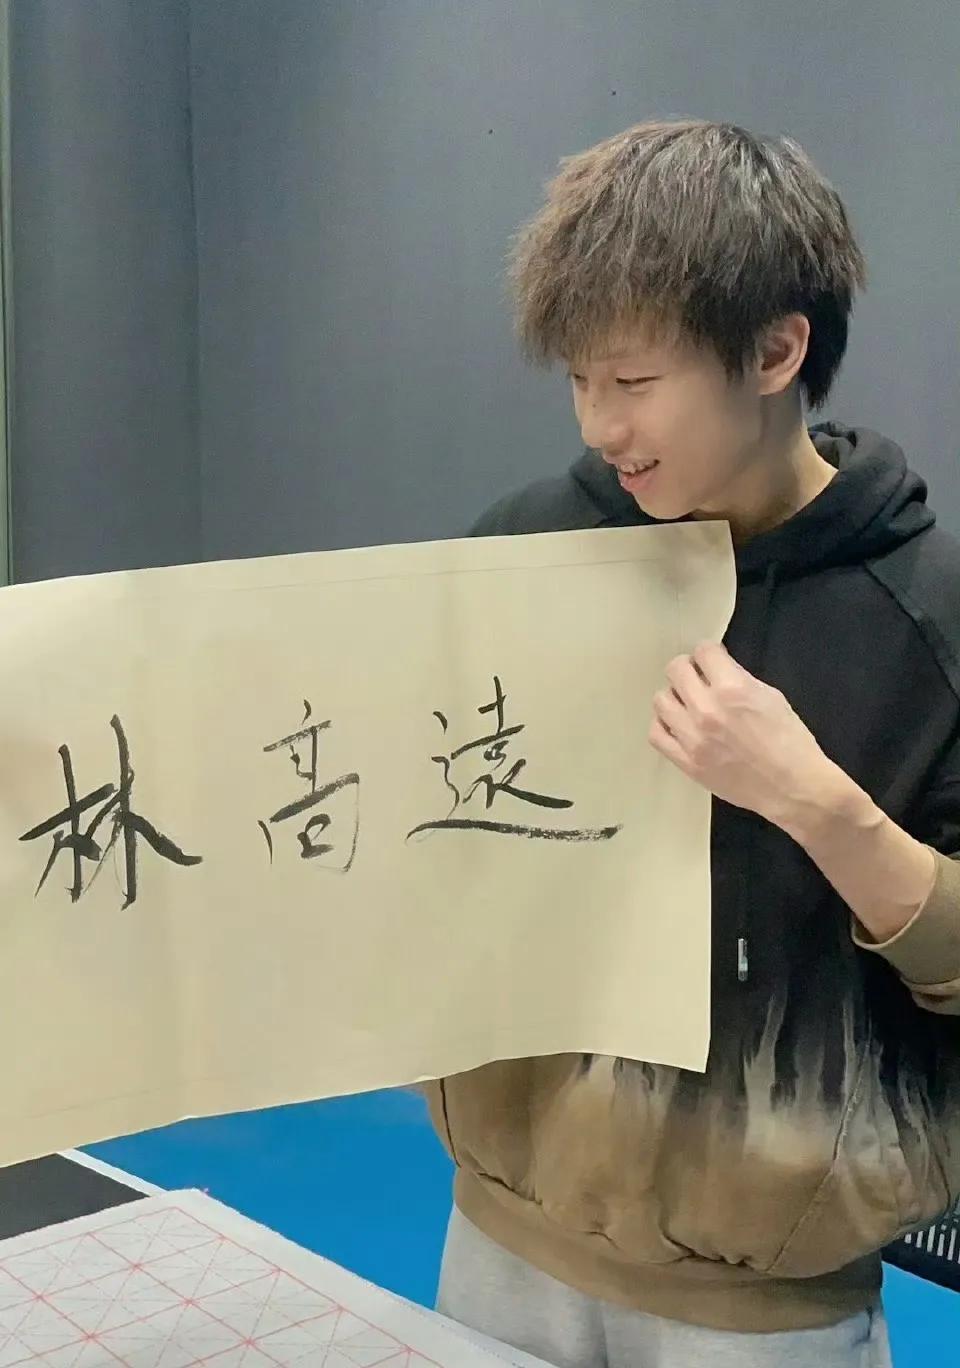 林高遠